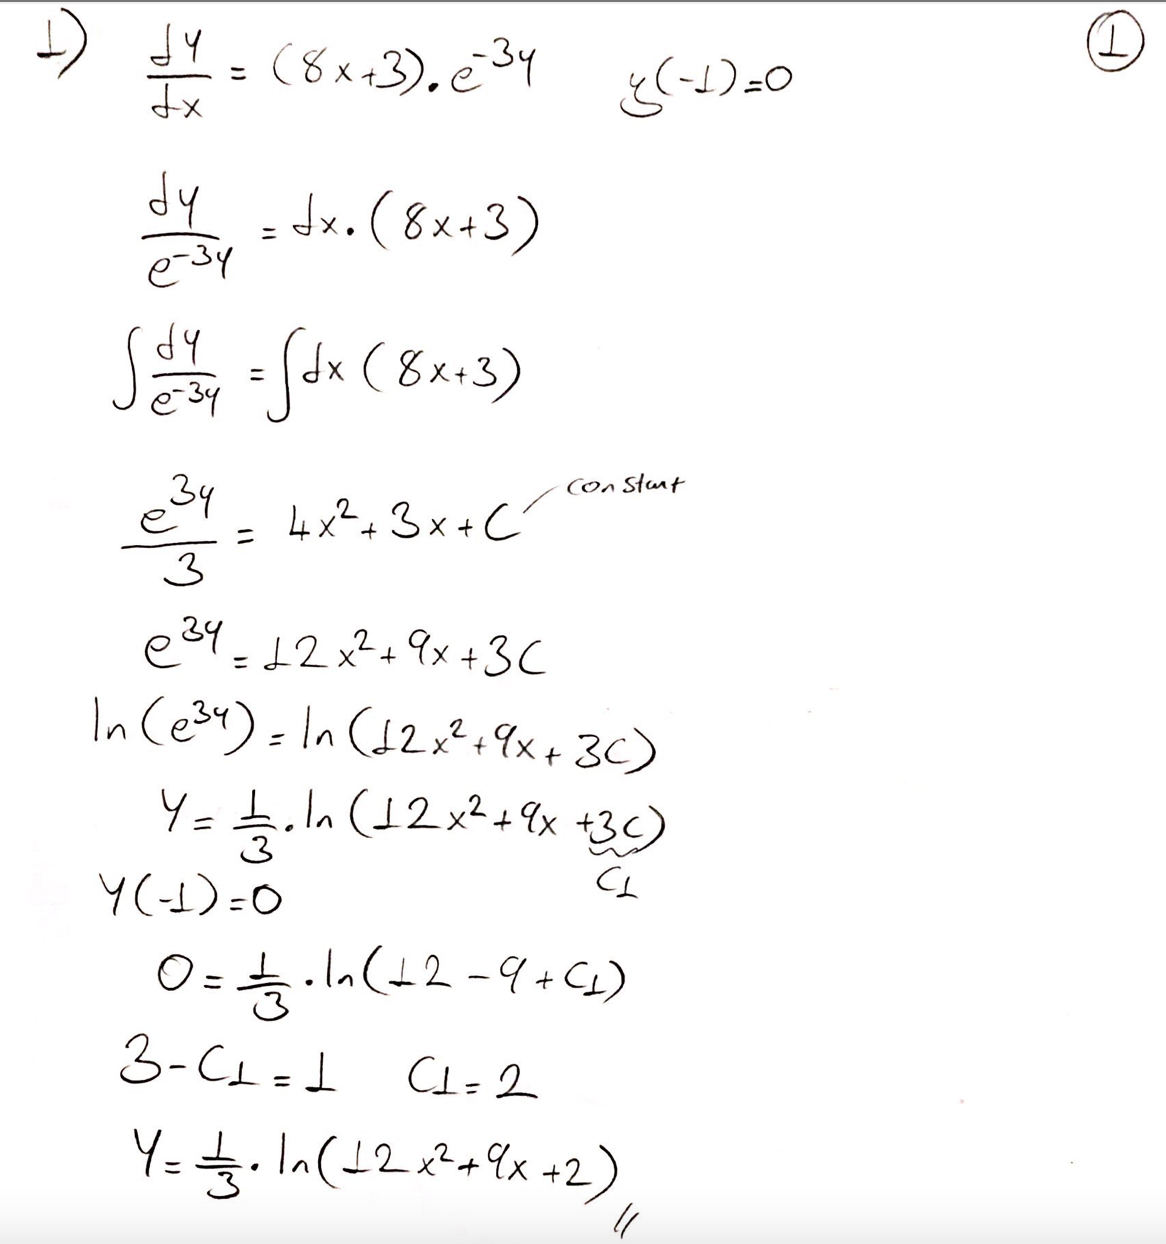 1) dy/dx = (8x+3).e^-3y y(-1)=0 ①
dy/e^-3y = dx.(8x+3)
∫ dy/e^-3y = ∫dx (8x+3)
e^3y/3 = 4x²+3x+C constant
e^3y = 12x²+9x+3C
ln(e^3y) = ln(12x²+9x+3C)
y = 1/3.ln(12x²+9x+3C)
C1
y(-1)=0
0 = 1/3.ln(12-9+C1)
3-C1=1 C1=2
y = 1/3.ln(12x²+9x+2)//